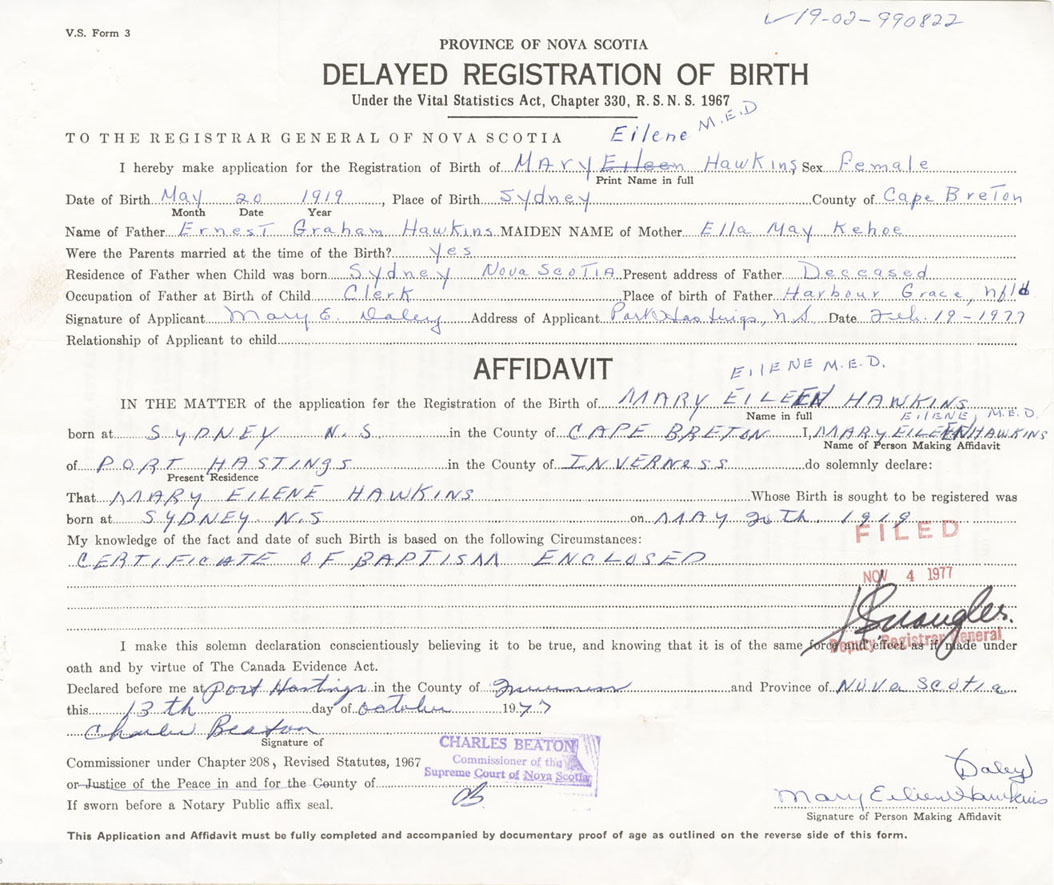 19-02-990822
V.S. Form 3
PROVINCE OF NOVA SCOTIA
DELAYED REGISTRATION OF BIRTH
Under the Vital Statistics Act, Chapter 330, R. S. N. S. 1967
TO THE REGISTRAR GENERAL OF NOVA SCOTIA Eilene M.E.D
I hereby make application for the Registration of Birth of MARY Eileen Hawkins Sex Female
Print Name in full
Date of Birth May 20 1919, Place of Birth Sydney County of Cape Breton
Month Date Year
Name of Father Ernest Graham Hawkins MAIDEN NAME of Mother Ella May Kehoe
Were the Parents married at the time of the Birth? Yes
Residence of Father when Child was born Sydney Nova Scotia Present address of Father Deceased
Occupation of Father at Birth of Child Clerk Place of birth of Father Harbour Grace, Nfld
Signature of Applicant Mary E. Daley Address of Applicant Port Hastings, N.S Date Feb. 19-1977
Relationship of Applicant to child
AFFIDAVIT
EILENE M.E.D.
IN THE MATTER of the application for the Registration of the Birth of MARY EILEEN HAWKINS
Name in full EILENE, M.E.D.
born at SYDNEY N.S in the County of CAPE BRETON I, MARY EILEEN HAWKINS
Name of Person Making Affidavit
of PORT HASTINGS in the County of INVERNESS do solemnly declare:
Present Residence
That MARY EILENE HAWKINS Whose Birth is sought to be registered was
born at SYDNEY N.S on MAY 20th. 1919
My knowledge of the fact and date of such Birth is based on the following Circumstances:
FILED
CERTIFICATE OF BAPTISM ENCLOSED
NOV 4 1977
Deputy Registrar General
I make this solemn declaration conscientiously believing it to be true, and knowing that it is of the same force and effect as if made under
oath and by virtue of The Canada Evidence Act.
Declared before me at Port Hastings in the County of Inverness and Province of Nova Scotia
this 13th day of October 1977
Charles Beaton
Signature of
CHARLES BEATON
Commissioner of the
Supreme Court of Nova Scotia
CB
Commissioner under Chapter 208, Revised Statutes, 1967
or Justice of the Peace in and for the County of
If sworn before a Notary Public affix seal.
(Daley)
Mary Eileen Hawkins
Signature of Person Making Affidavit
This Application and Affidavit must be fully completed and accompanied by documentary proof of age as outlined on the reverse side of this form.